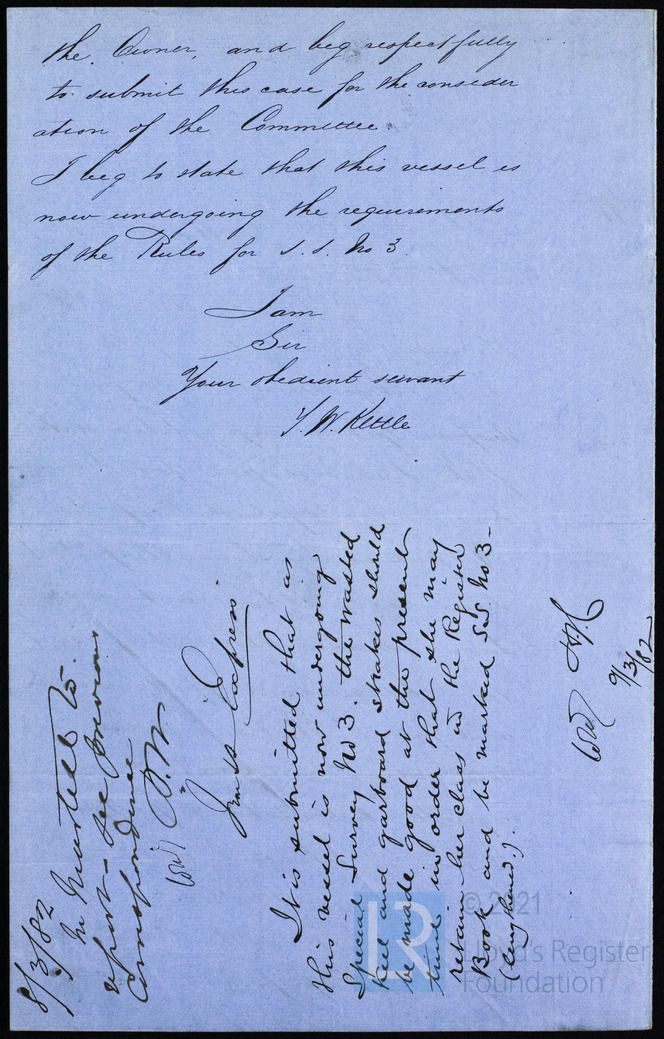 the Owner, and beg respectfully
to submit this case for the consider
ation of the Committee
I beg to state that this vessel is
now undergoing the requirements
of the Rules for S. S. No 3.
I am
Sir
Your obedient servant
T. W. Kettle
8/3/82
Mr Martell to
report - see previous
correspondence
Iron SS Express
It is submitted that as
this vessel is now undergoing
Special Survey No 3. the wasted
keel and garboard strakes should
be made good at the present
time in order that she may
retain her class in the Register
Book and be marked S.S. No 3-
(lengthened).
9/3/82
© 2021
Lloyd's Register
Foundation